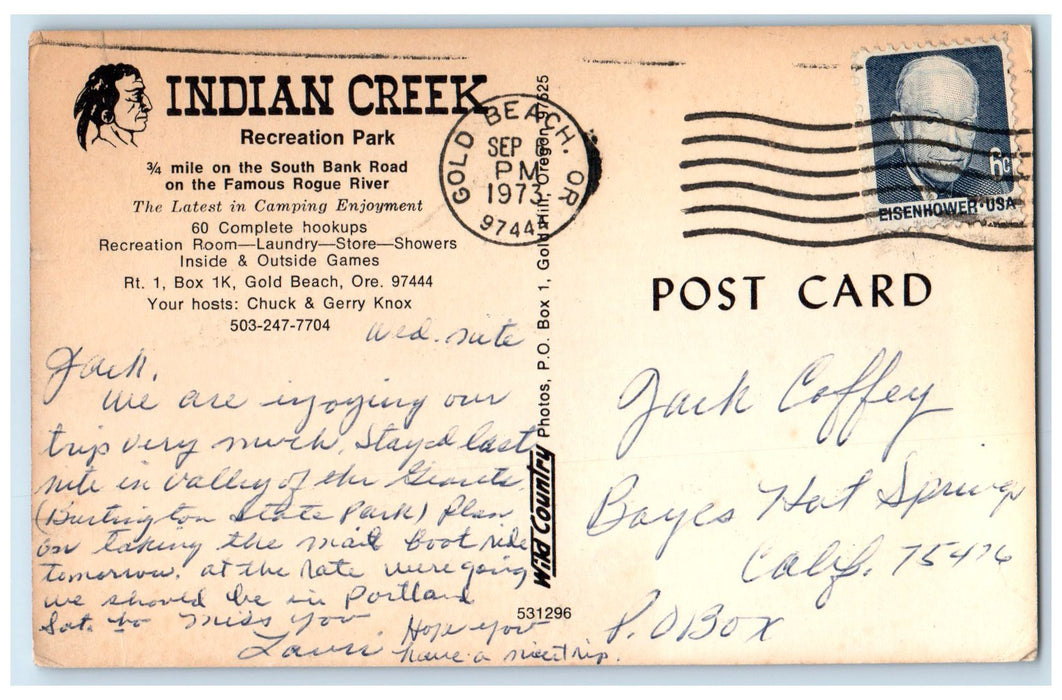 INDIAN CREEK
Recreation Park
3/4 mile on the South Bank Road
on the Famous Rogue River
The Latest in Camping Enjoyment
60 Complete hookups
Recreation Room—Laundry—Store—Showers
Inside & Outside Games
Rt. 1, Box 1K, Gold Beach, Ore. 97444
Your hosts: Chuck & Gerry Knox
503-247-7704
Wed. nite
Jack,
We are injoying our
trip very much. Stayed last
nite in Valley of the Geants
(Burlington State Park) Plan
on taking the mail boat ride
tomorrow. at the rate were going
we should be in Portland
Sat. Miss you
Hope you
have a nice trip.
Wild Country Photos, P.O. Box 1, Gold Hill, Oregon 97525
531296
GOLD BEACH. OR
SEP
PM
1973
97444
6c
EISENHOWER·USA
POST CARD
Jack Coffey
Boyes Hot Springs
Calif. 75476
P.O Box